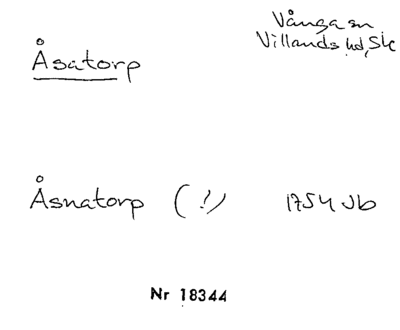 Vånga sn
Villands hd, Sk
Åsatorp
Åsnatorp (!) 1754 Jb
Nr 18344